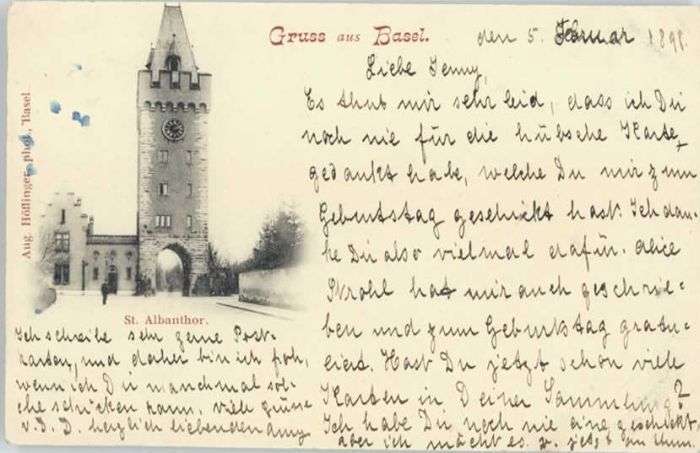 Gruss aus Basel.
den 5. Februar 1898.
Liebe Jenny,
Es thut mir sehr leid, dass ich Dir
noch nie für die hübsche Karte
gedankt habe, welche Du mir zum
Geburtstag geschickt hast. Ich dan-
ke Dir also vielmal dafür. Alice
Strohl hat mir auch geschrie-
ben und zum Geburtstag gratu-
liert. Hast Du jetzt schon viele
Karten in Deiner Sammlung?
Ich habe Dir noch nie eine geschickt,
aber ich möcht es
Aug. Höflinger, phot., Basel
St. Albanthor.
Ich schreibe sehr gerne Post-
karten, und daher bin ich froh,
wenn ich Dir manchmal sol-
che schicken kann. Viele Grüsse
v. D. D. herzlich liebenden Amy